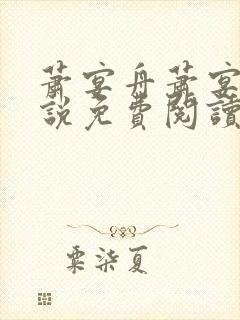 蕭宴舟蕭宴
說免費閱讀
粟柒夏